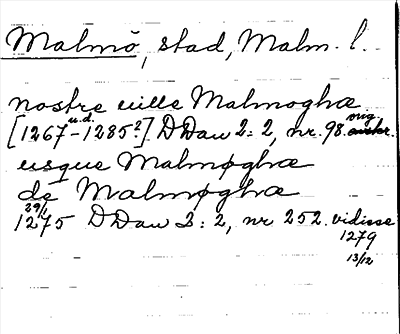 Malmö, stad, Malm. l.
nostre uille Malmoghæ
[1267 u.d. - 1285?] DDan 2:2, nr. 98. orig.
usque Malmøghæ
de Malmøghæ
29/1 1275 DDan 2:2, nr 252. vidisse
1279
13/12